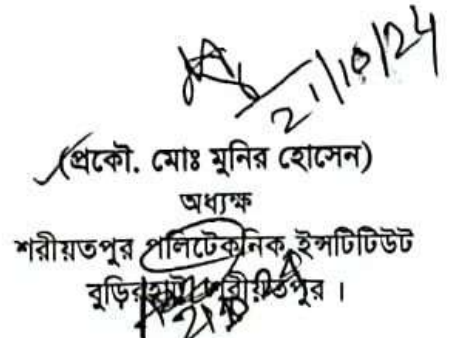 21/10/24
(প্রকৌ. মোঃ মুনির হোসেন)
অধ্যক্ষ
শরীয়তপুর পলিটেকনিক ইন্সটিটিউট
বুড়িরহাট, শরীয়তপুর ।